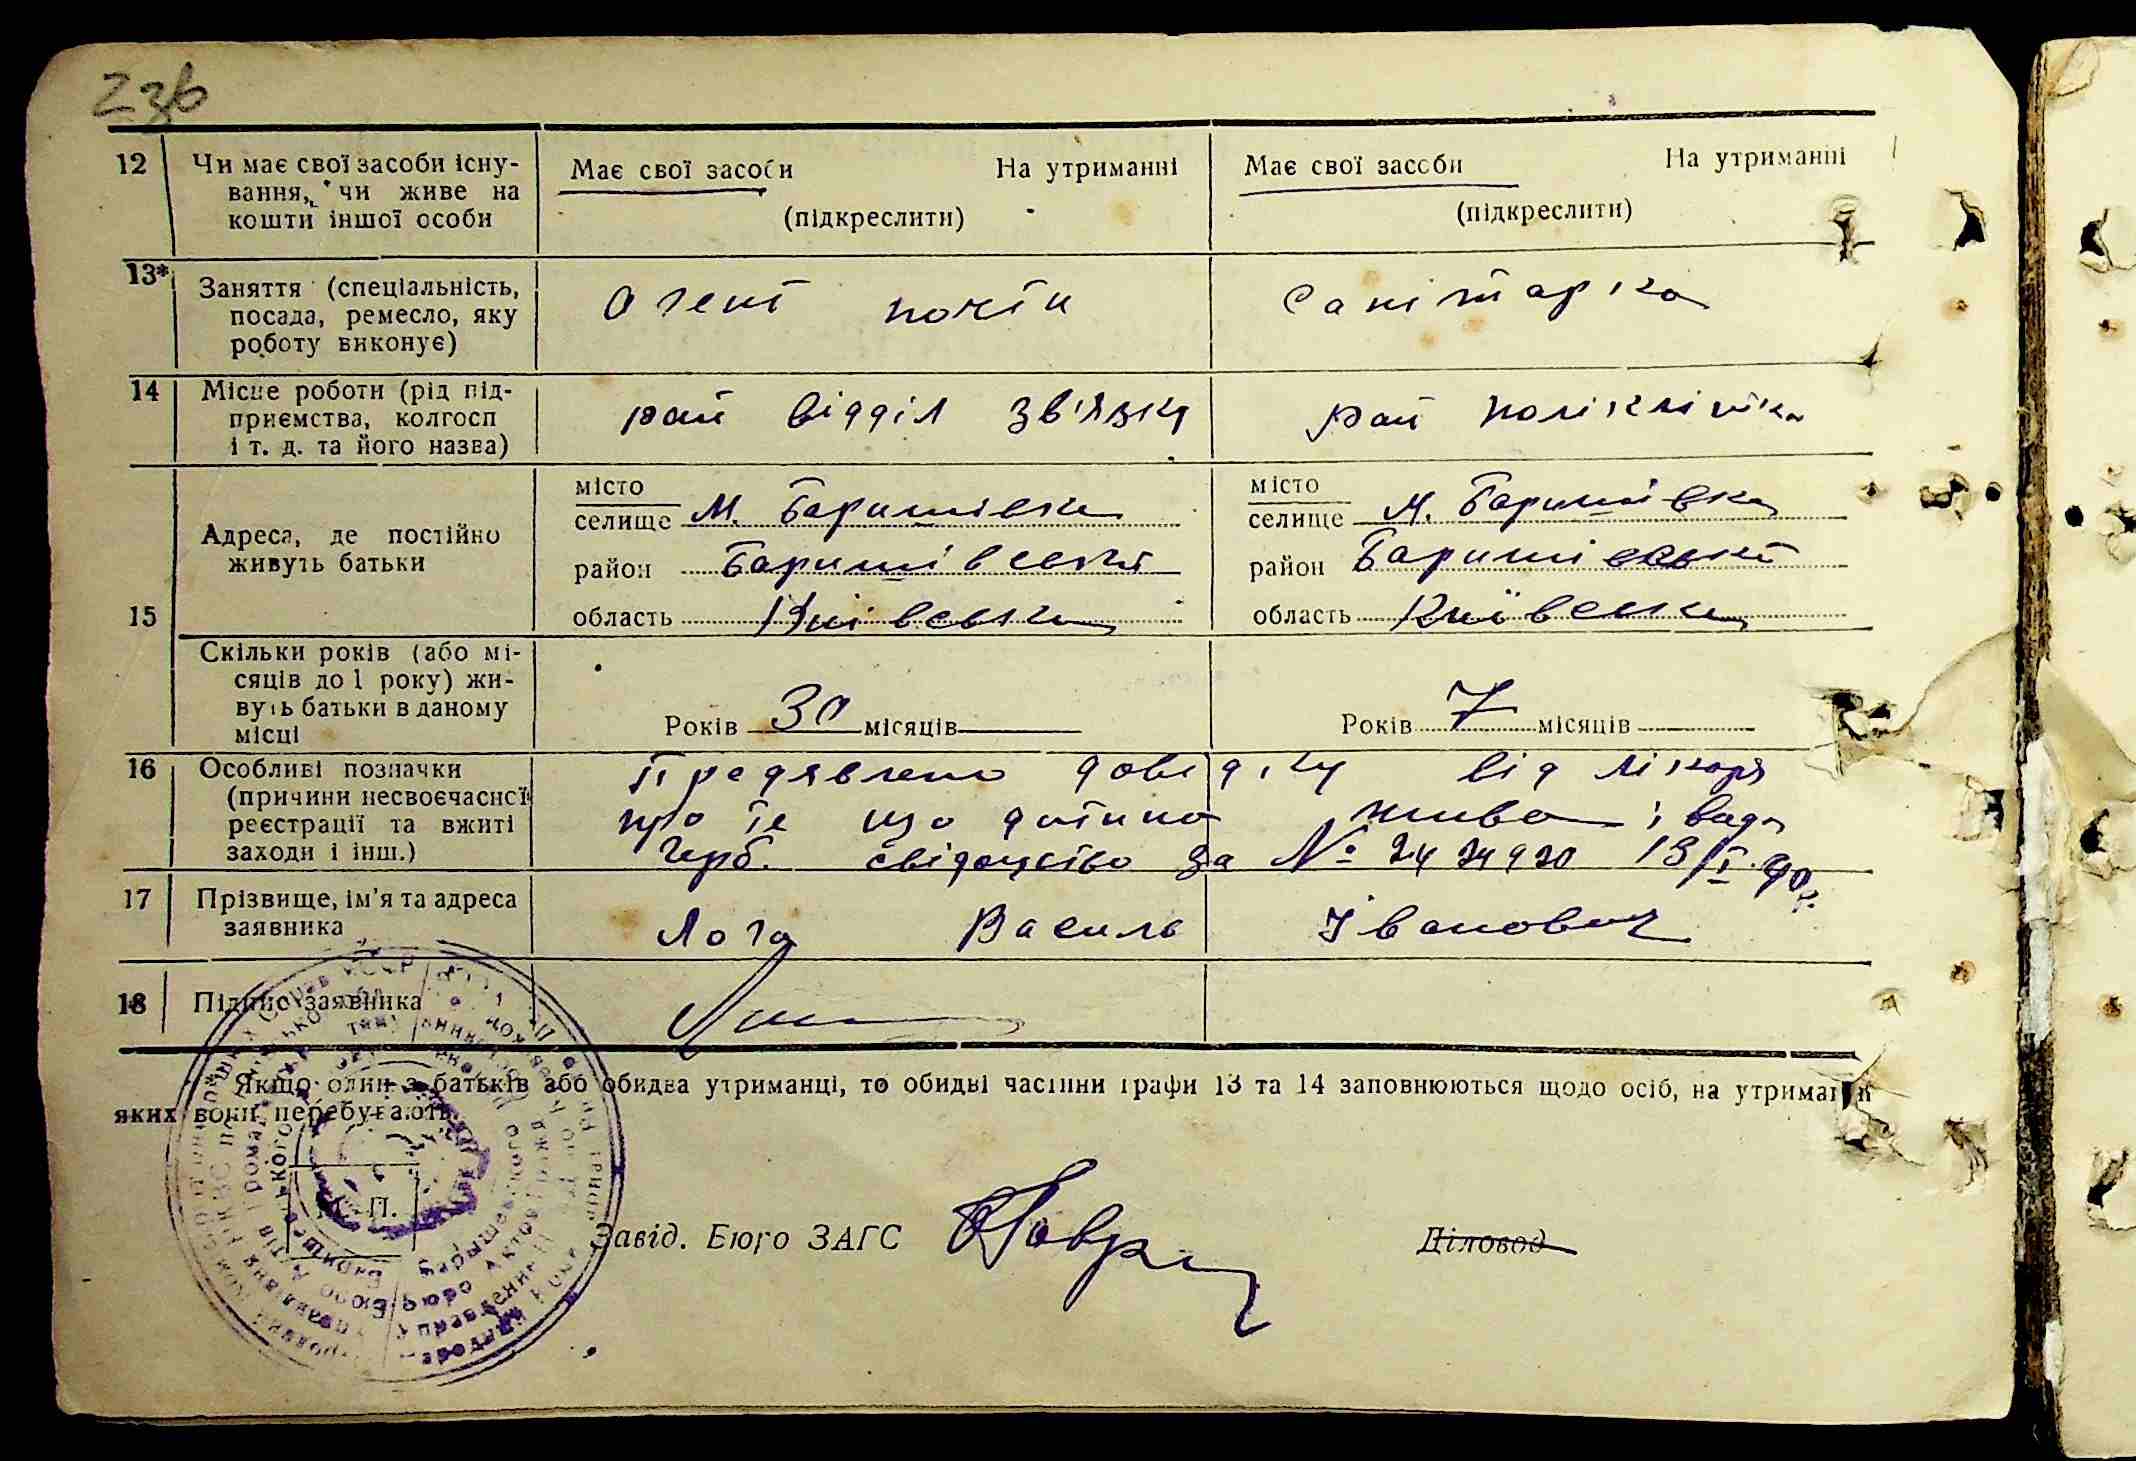 23б
12 Чи має свої засоби існу-
вання, чи живе на
кошти іншої особи
Має свої засоби На утриманні
(підкреслити)
Має свої засоби На утриманні
(підкреслити)
13* Заняття (спеціальність,
посада, ремесло, яку
роботу виконує)
Агент почти
Санітарка
14 Місце роботи (рід під-
приємства, колгосп
і т. д. та його назва)
рай відділ зв'язку
рай поліклініка
15 Адреса, де постійно
живуть батьки
місто
селище м. Баришівка
район Баришівський
область Київська
місто
селище м. Баришівка
район Баришівський
область Київська
Скільки років (або мі-
сяців до 1 року) жи-
вуть батьки в даному
місці
Років 30 місяців
Років 7 місяців
16 Особливі позначки
(причини несвоєчасної
реєстрації та вжиті
заходи і інш.)
Предявлено довідку від лікаря
про те що дитина жива і вида
герб. свідоцтво за № 2424920 13/I 40р.
17 Прізвище, ім'я та адреса
заявника
Лога Василь Іванович
18 Підпис заявника
Якщо один з батьків або обидва утриманці, то обидві частини графи 13 та 14 заповнюються щодо осіб, на утриманні
яких вони перебувають.
М. П.
Завід. Бюро ЗАГС
Діловод